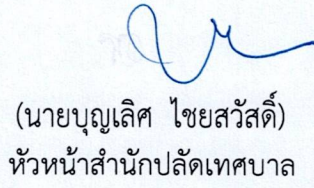 (นายบุญเลิศ ไชยสวัสดิ์)
หัวหน้าสำนักปลัดเทศบาล